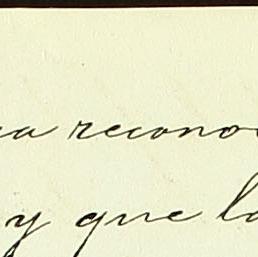 ra recono
y que la